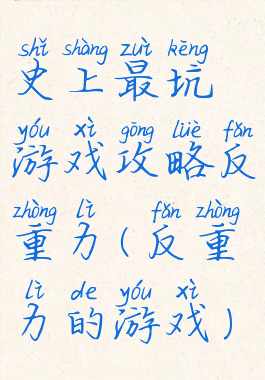 shǐ shàng zuì kēng
史上最坑
yóu xì gōng lüè fǎn
游戏攻略反
zhòng lì fǎn zhòng
重力(反重
lì de yóu xì
力的游戏)